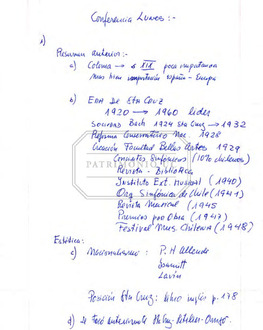 Conferencia Lunes:-
1)
Resumen anterior:-
a) Colonia → s XIX poca importancia
mas bien importación español - Europa
b) Era De Sta Cruz
1920 → 1960 lider
Sociedad Bach 1924 Sta Cruz → 1932
Reforma Conservatorio Nac. 1928
Creación Facultad Bellas Artes 1929
Conciertos Sinfónicos (10% chilenos)
Revista - Biblioteca
Instituto Ext. Musical (1940)
Orq. Sinfónica de Chile (1941)
Revista Musical (1945
Premios por Obra (1947)
Festival Mus. Chilena (1948)
PATRIMONIO
Estética:
c) Nacionalismo: P. H Allende
Isamitt
Lavín
Posición Sta Cruz: libro inglés p. 128
d) Se tocó anteriormente